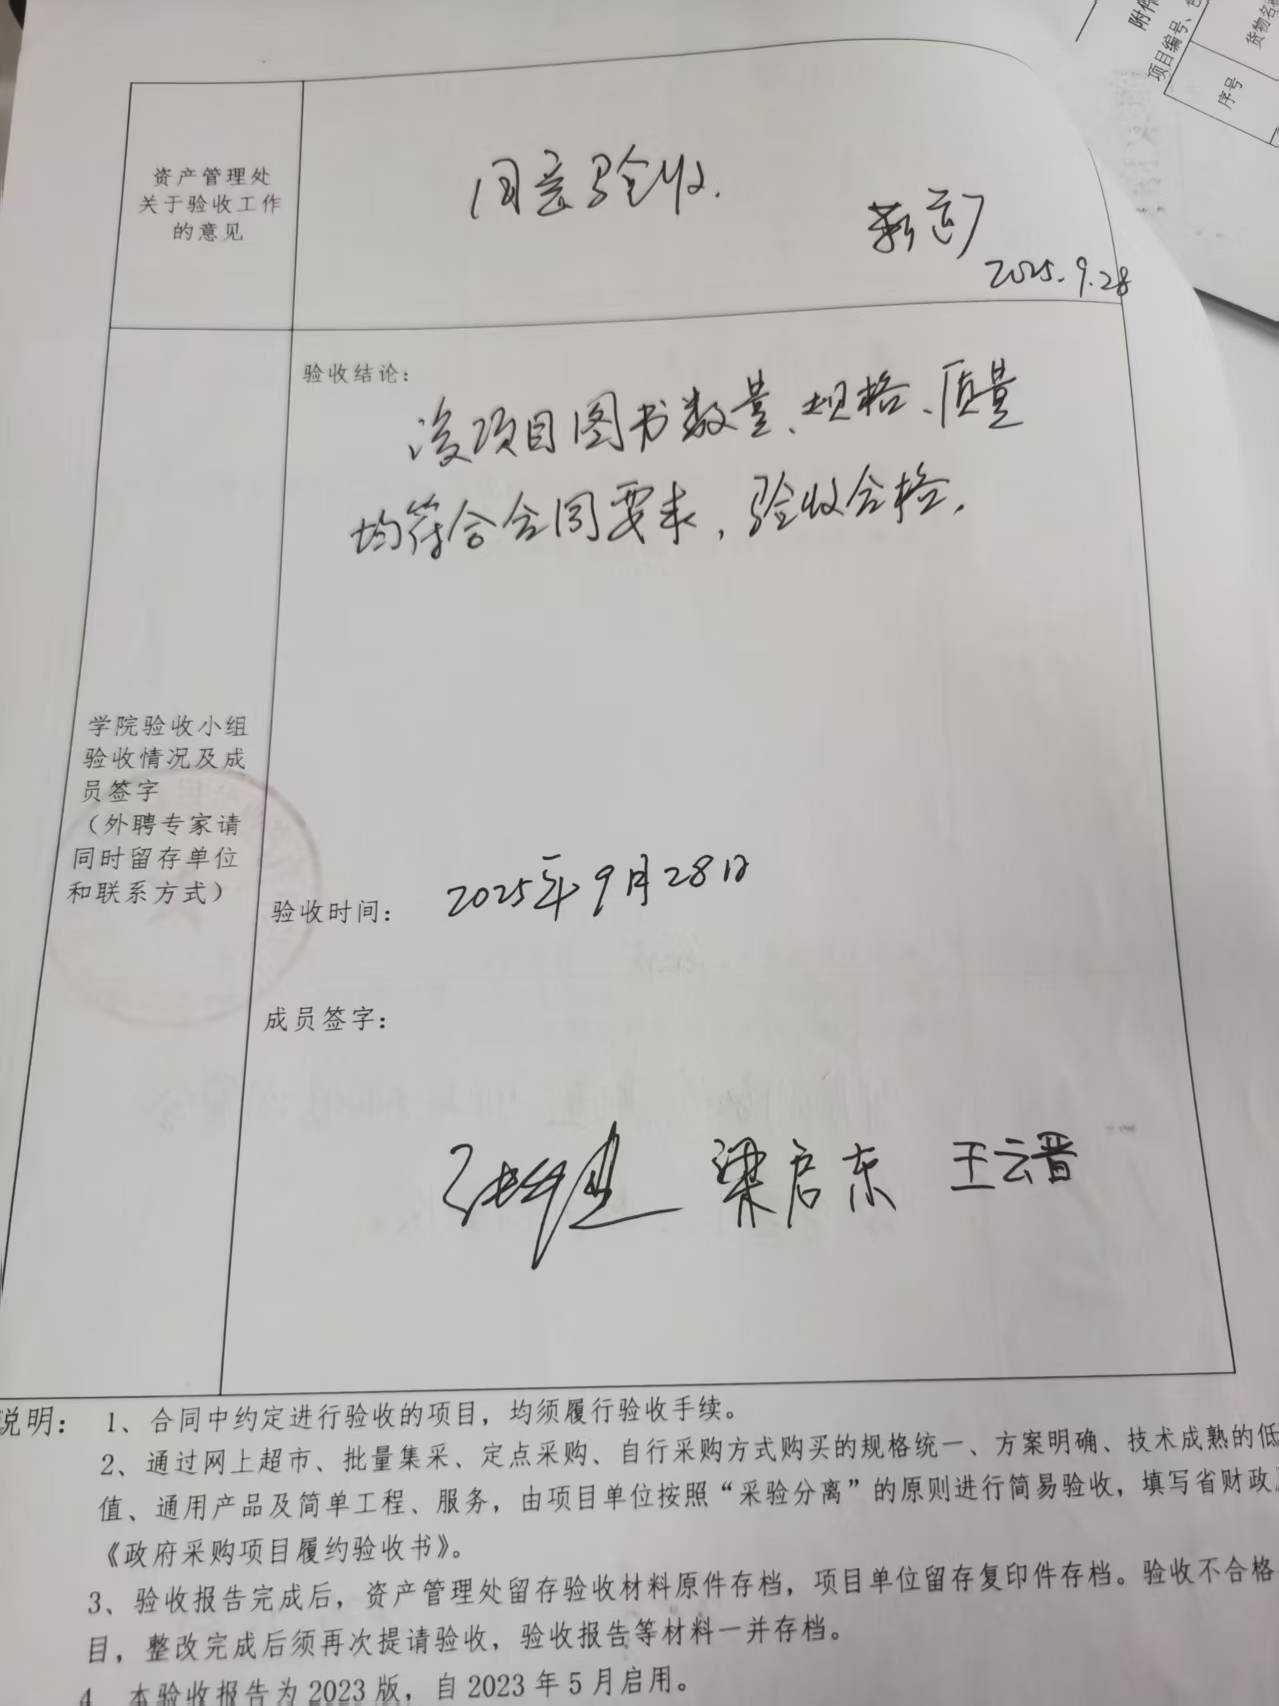 附件
项目编号、
货物名
序号
资产管理处
关于验收工作
的意见
同意验收.
2025.9.28
验收结论:
该项目图书数量、规格、质量
均符合合同要求，验收合格.
学院验收小组
验收情况及成
员签字
（外聘专家请
同时留存单位
和联系方式）
验收时间: 2025年9月28日
成员签字:
梁启东 王云晋
说明: 1、合同中约定进行验收的项目，均须履行验收手续。
2、通过网上超市、批量集采、定点采购、自行采购方式购买的规格统一、方案明确、技术成熟的低
值、通用产品及简单工程、服务，由项目单位按照“采验分离”的原则进行简易验收，填写省财政
《政府采购项目履约验收书》。
3、验收报告完成后，资产管理处留存验收材料原件存档，项目单位留存复印件存档。验收不合格
目，整改完成后须再次提请验收，验收报告等材料一并存档。
4、本验收报告为 2023 版，自 2023 年 5 月启用。